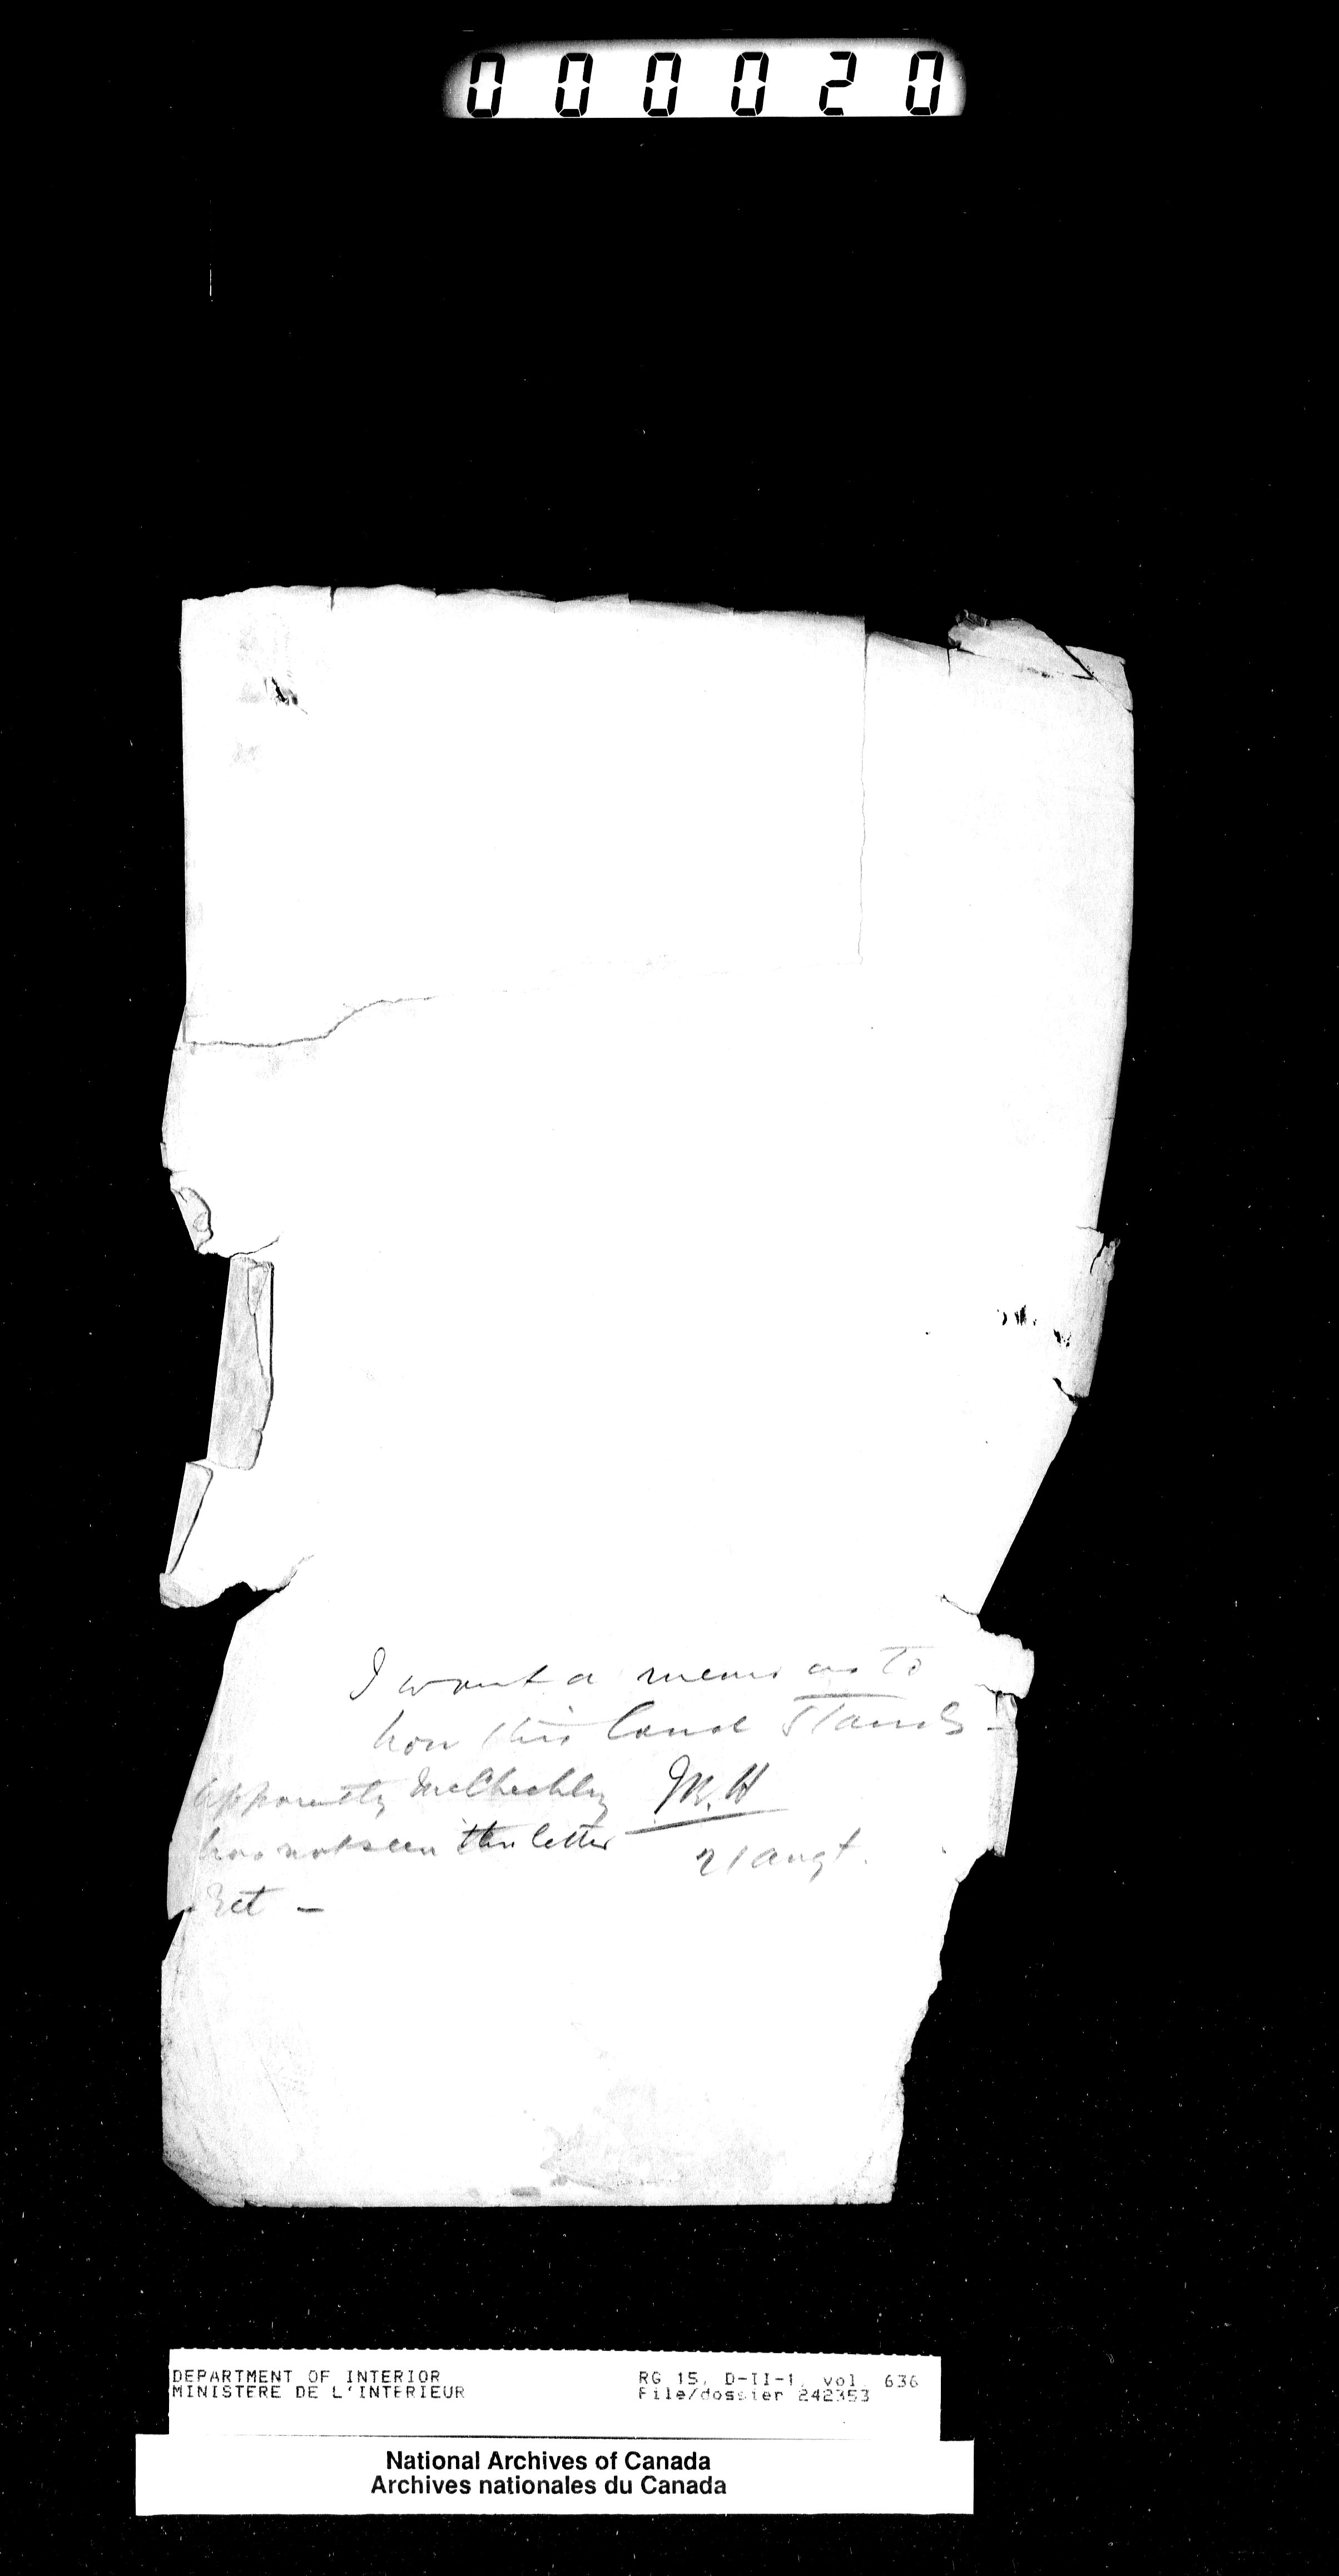 000020
I want a memo as to
how this land stands -
apparently McChechley
has not seen this letter
yet -
M. H
21 Augt.
DEPARTMENT OF INTERIOR
MINISTERE DE L'INTERIEUR
RG 15, D-II-1, vol. 636
File/dossier 242353
National Archives of Canada
Archives nationales du Canada